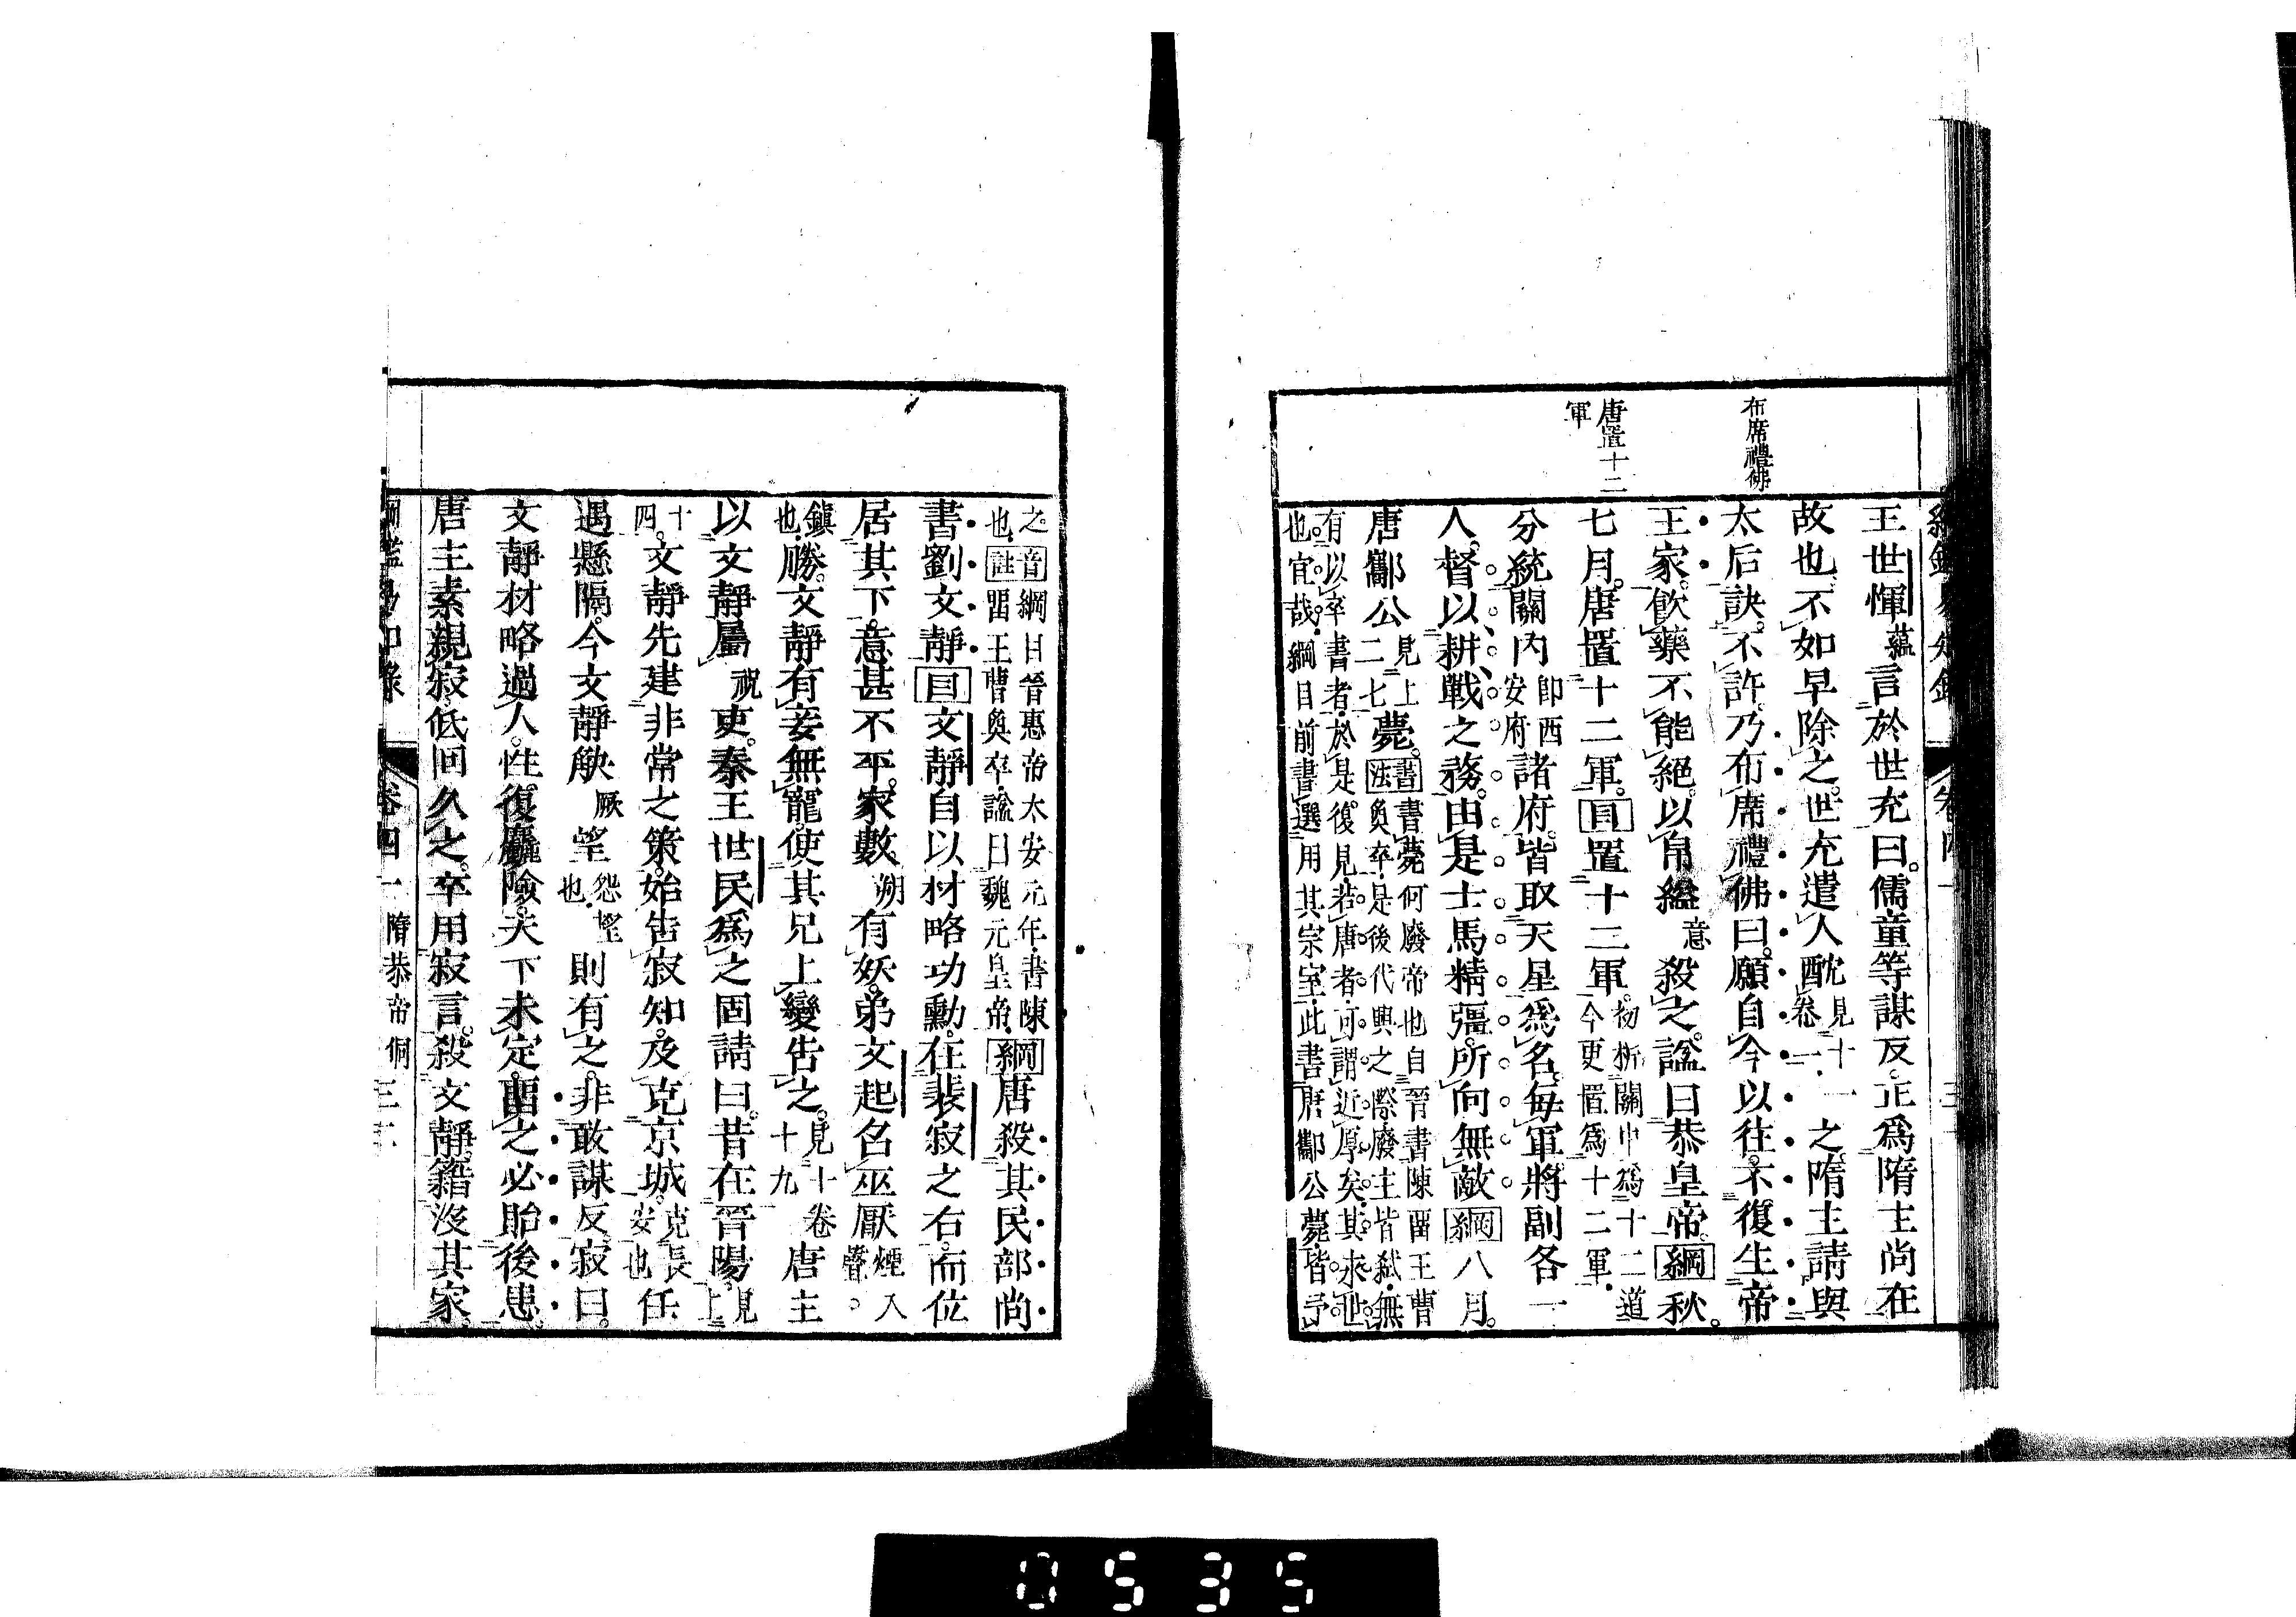 布席禮佛
唐置十二
軍
王世惲蘊言於世充曰。儒童等謀反。正爲隋主尚在
故也。不如早除之。世充遣人酖見十一卷一之。隋主請與
太后訣。不許。乃布席禮佛曰。願自今以往。不復生帝
王家。飲藥不能絕。以帛縊意殺之。諡曰恭皇帝。綱秋。
七月。唐置十二軍。目置十二軍。初析關中爲十二道今更置爲十二軍
分統關內卽西安府諸府。皆取天星爲名。每軍將副各一
人。督以耕戰之務。由是士馬精彊。所向無敵。綱八月。
唐酅公見上二七薨。書法書薨何廢帝也自晉書陳留王曹奐卒。是後代興之際廢主皆弑。無
有以卒書者。於是復見。若唐者。可謂近厚矣。其永世
也。宜哉。綱目前書選用其宗室。此書唐酅公薨。皆予
之。音註綱目晉惠帝太安元年。書陳
也。留王曹奐卒。諡曰魏元皇帝。綱唐殺其民部尚
書劉文靜。目文靜自以材略功勳。在裴寂之右。而位
居其下。意甚不平。家數朔有妖。弟文起名巫厭煙入聲。
鎮也。勝。文靜有妾無寵。使其兄上變告之。見十卷十九唐主
以文靜屬祝吏。秦王世民爲之固請曰。昔在晉陽。見上
十四。文靜先建非常之策。始告寂知。及克京城。克長安也任
遇懸隔。今文靜觖厥望怨望也則有之。非敢謀反。寂曰。
文靜材略過人。性復麤險。天下未定。留之必貽後患。
唐主素親寂。低回久之。卒用寂言。殺文靜。籍沒其家。
卷四一 隋恭帝侗
0535